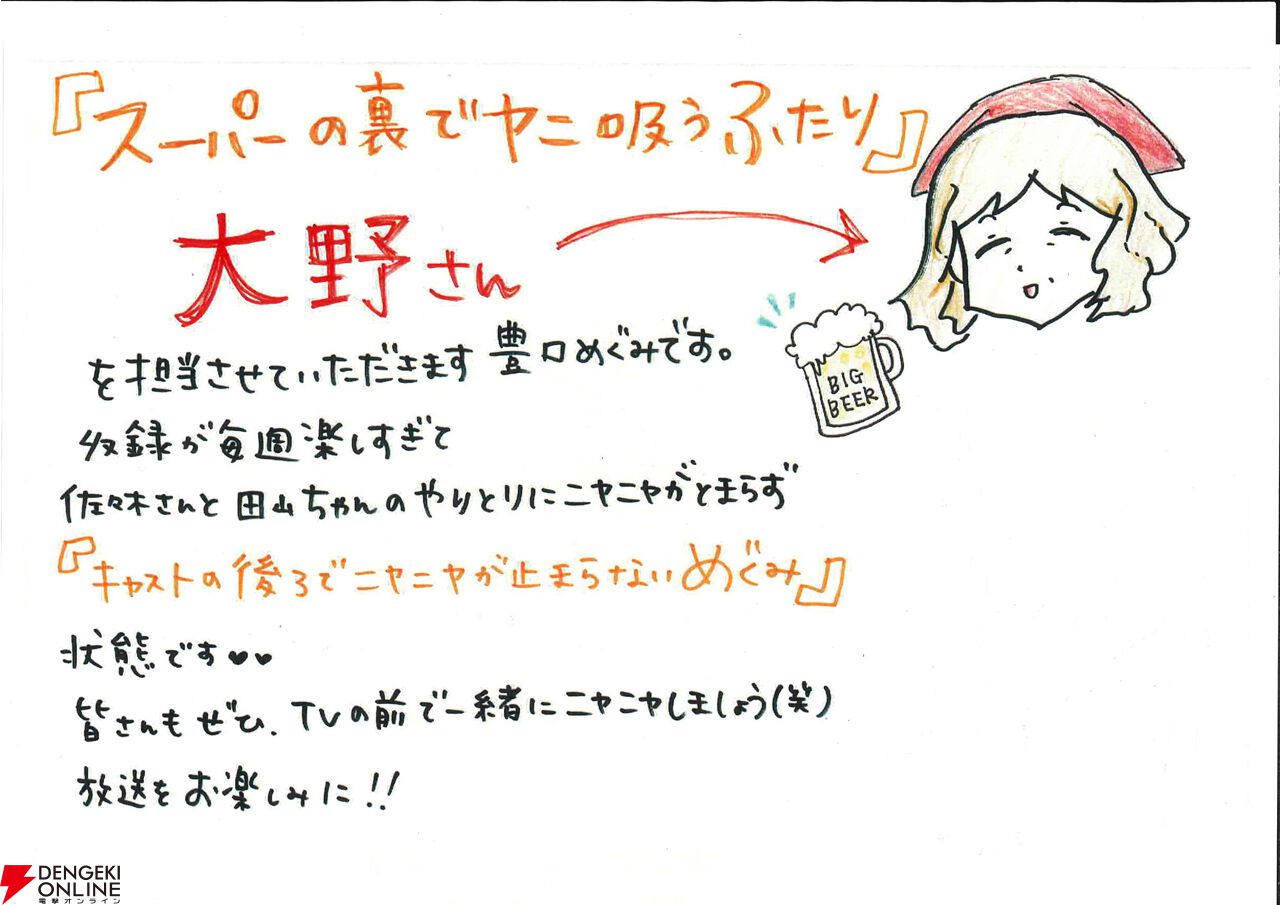 『スーパーの裏でヤニ吸うふたり』
大野さん
を担当させていただきます 豊口めぐみです。
BIG
BEER
収録が毎週楽しすぎて
佐々木さんと田山ちゃんのやりとりにニヤニヤがとまらず
『キャストの後ろでニヤニヤが止まらないめぐみ』
状態です♥♥
皆さんもぜひ、TVの前で一緒にニヤニヤしましょう(笑)
放送をお楽しみに!!
DENGEKI
ONLINE
電撃オンライン